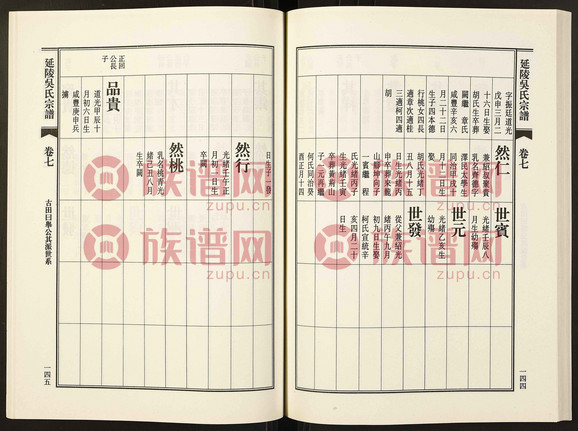 延陵吳氏宗譜
卷七
一四四
字振廷道光
戊申三月二
十六日生娶
胡氏生卒葬
闕繼 章氏
咸豐辛亥六
月二十二日
生子四本德
行桃女四長
適章次適桂
三適柯四適
胡
然仁
兼紹叔彙貴
乳名典德青
澤民太學生
同治甲戌十
月十一日生
娶
胡氏光緒丁
丑八月十五
日生光緒丙
申卒葬來龍
山腳坤向子
一賓繼 程
氏光緒丙子
生光緒壬寅
卒葬黃荊山
子一元再繼
何氏同治癸
酉正月十四
日生子一發
世賓
光緒壬辰八
月生幼殤
世元
光緒乙亥生
幼殤
世發
從父兼紹光
緒丙午九月
初九日生娶
柯氏宣統辛
亥四月二十
日生
然行
光緒壬午正
月初一日生
卒闕
然桃
乳名桃青光
緒己丑八月
生卒闕
正回
公長
子
品貴
道光甲辰十
月初六日生
咸豐庚申兵
擄
延陵吳氏宗譜
卷七
古田日舉公其派世系
一四五
族谱网
zupu.cn
族谱网
zupu.cn